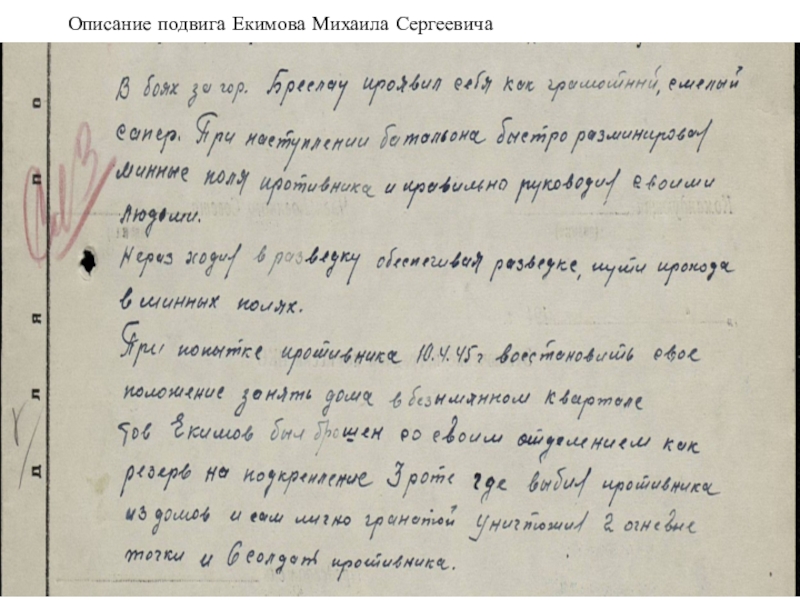 Описание подвига Екимова Михаила Сергеевича
В боях за гор. Бреслау проявил себя как грамотный, смелый
сапер. При наступлении батальона быстро разминировал
минные поля противника и правильно руководил своими
людьми.
Нераз ходил в разведку обеспечивая разведке, пути прохода
в минных полях.
При попытке противника 10.4.45г восстановить свое
положение занять дома в безымянном квартале
тов Екимов был брошен со своим отделением как
резерв на подкрепление 3 роте где выбил противника
из домов и сам лично гранатой уничтожил 2 огневые
точки и 6 солдат противника.
Д Л Я П О